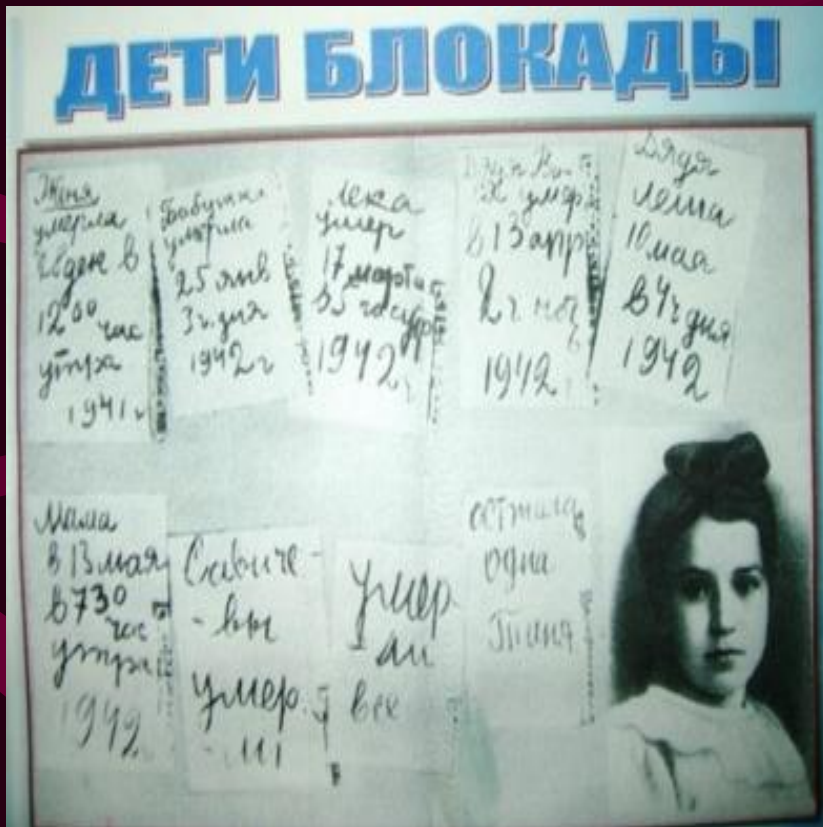 ДЕТИ БЛОКАДЫ
Женя
умерла
28 дек в
12 00 час
утра
1941 г
Бабушка
умерла
25 янв
3 ч. дня
1942 г
Лека
умер
17 марта
в 5 час утр
1942 г
Дядя Ва
ся умер
в 13 апр
2 ч ноч
1942
Дядя
Леша
10 мая
в 4 ч дня
1942
Мама
в 13 мая
в 7 30
час
утра
1942
Савиче-
-вы
умер
-ли
умер
ли
все
осталась
одна
Таня